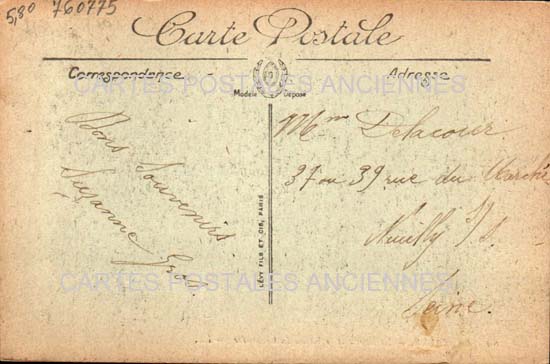 5,80 760775
Carte Postale
Correspondance
Adresse
Modèle Déposé
CARTES POSTALES ANCIENNES
Bons Souvenirs
Suzanne
LÉVY FILS ET CIE, PARIS
Mme Delacour
37 ou 39 rue du Marché
Neuilly s/s
Seine.
CARTES POSTALES ANCIENNES